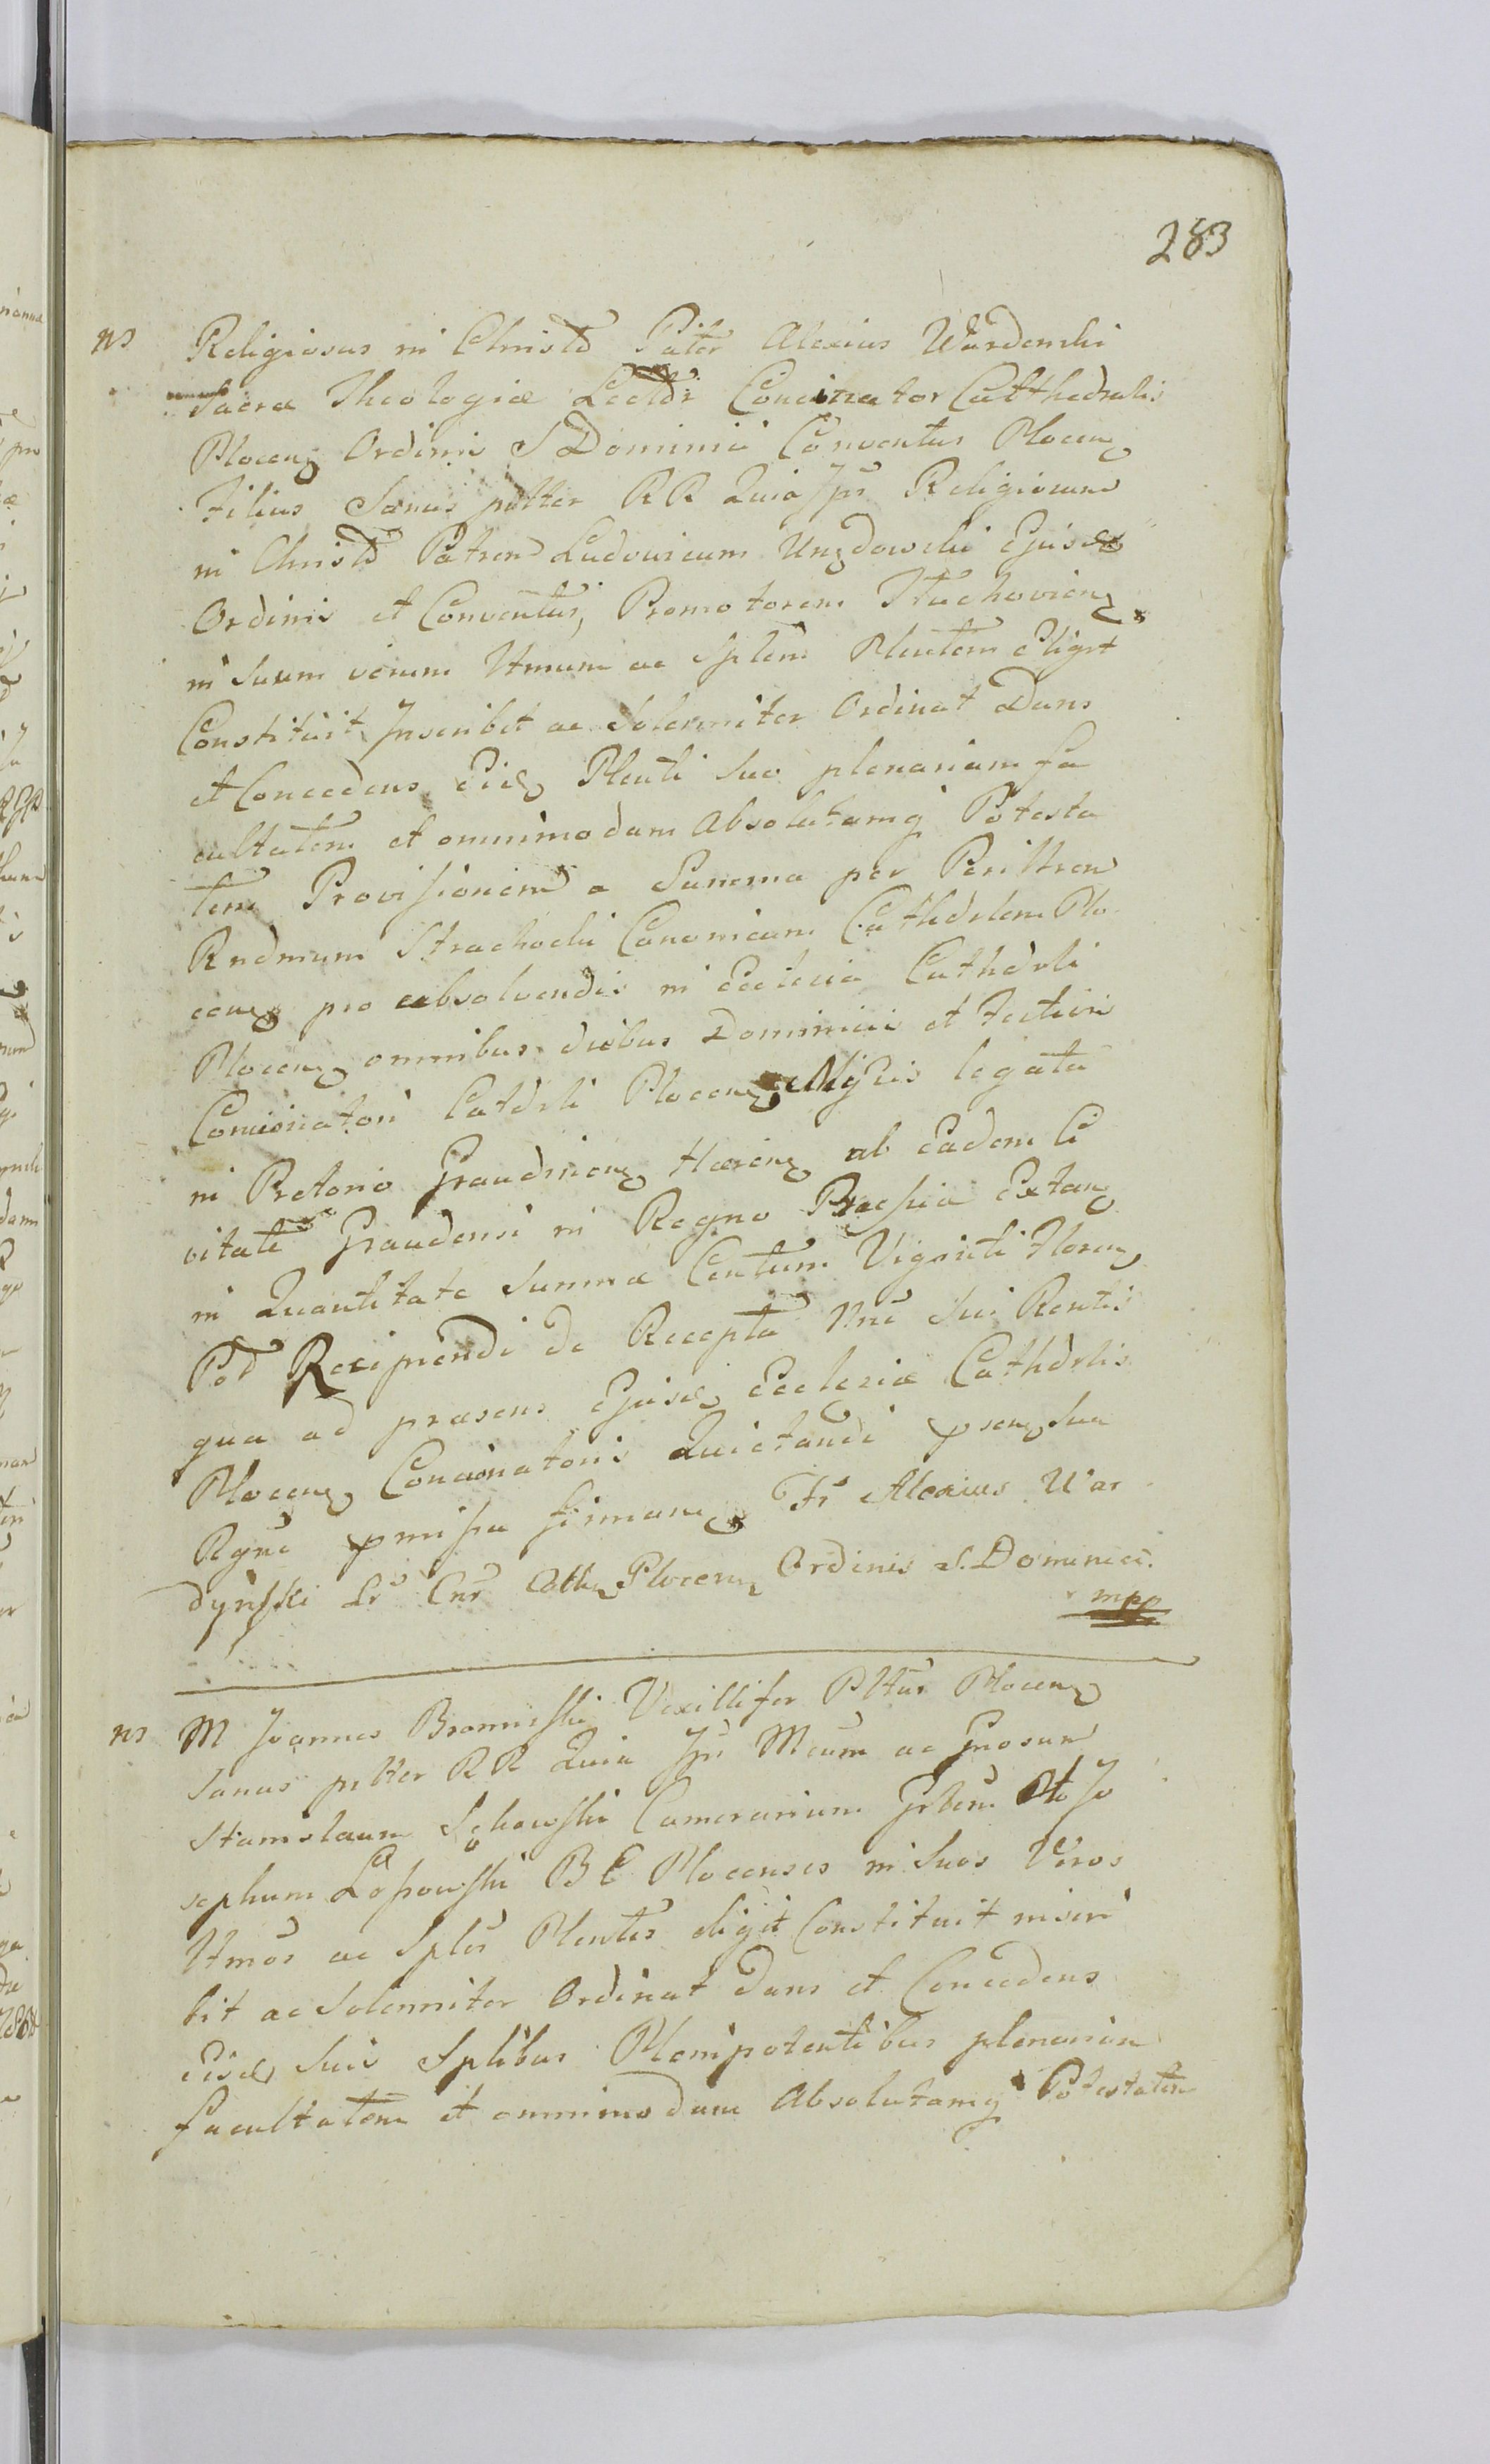 283
ns Religiosus in Christo Pater Alexius Wardenski
Sacræ Theologiæ Lector Concinator Catthedralis
Plocenȝ Ordinis S Dominici Conventus Plocenȝ
Filius Sanus pltter RR Quia Jps Religiosum
in Christo Patrem Ludovicum Unzdowski Ejusdȝ
Ordinis et Conventus, Promotorem
in Suum verum Ltmum ac Splem Plentem Eligit
Constituit Inscribit ac Solenniter Ordinat Dans
et Concedens Eidȝ Plenti Suo plenariam fa
cultatem et omnimodam Absolutamqȝ Potesta
tem Provisionem a Summa per Perilltrem
Rndmum Strachocki Canonicum Cathedrlem Plo
cenȝ pro absolvendis in Ecclesia Cathedrli
Plocenȝ omnibus diebus Dominicis et Festivis
Concionatori Catdrli Plocenȝ Missis legata
in Pretorio Graudnicenȝ ab Eadem Ci
vitate Graudensi in Regno Extanȝ
in Quantitate Summæ Centum Viginti Florenȝ
Pol Recipiendi de Recepta Vnē Sui Rentis
qua ad præsens Ejusdȝ Ecclesiæ Cathdrlis
Plocenȝ Concionatoris Quietandi psenȝ Sua
Rgnē pmissa firmanȝ Fr Alexius War
dynski Lr Cnr Cathȝ Plocenȝ Ordinis S. Dominici.
mpp
ns M Joannes Bromirski Vexillifer Pltus Plocenȝ
Sanus pltter RR Quia Jps Mcum ac Gnosum
Stanislaum Sękowski Camerarium Grlem Plo Jo
sephum Łossowski B C Plocenses in Suos Veros
Ltmos ac Sples Plentes eligit Constituit inscri
bit ac Solenniter Ordinat Dans et Concedens
Eisdȝ Suis Splibus Plenipotentibus plenariam
facultatem et omnimodam Absolutamqȝ Potestatem